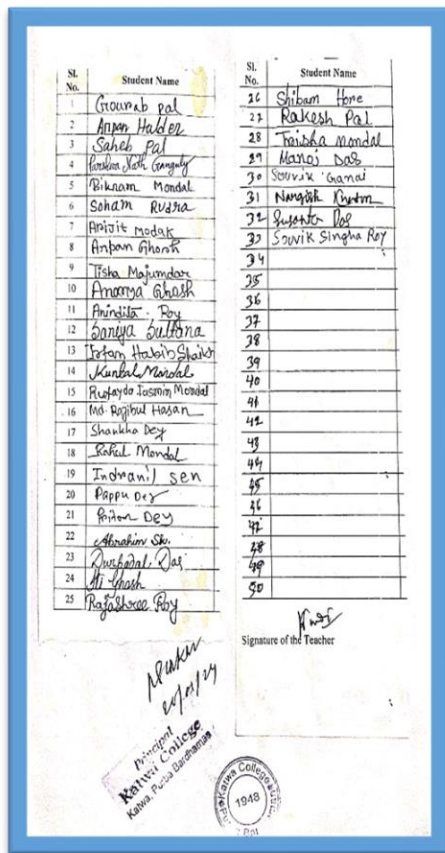 Sl. No. Student Name
1 Gourab pal
2 Arpan Halder
3 Saheb Pal
4 Parshra Nath Ganguly
5 Bikram Mondal
6 Soham Rudra
7 Arijit Modak
8 Arpan Ghosh
9 Tisha Majumdar
10 Ananya Ghosh
11 Anindita Roy
12 Saniya Sultana
13 Irfan Habib Shaikh
14 Kuntal Mondal
15 Rufayda Jasmin Mondal
16 Md. Rajibul Hasan
17 Shankha Dey
18 Rahul Mondal
19 Indranil sen
20 Pappu Dey
21 Dey
22 Abrahim Sk.
23 Das
24 Ghosh
25 Rajashree Roy
Sl. No. Student Name
26 Shibam Hore
27 Rakesh Pal
28 Traisha Mondal
29 Manoj Das
30 Souvik Ganai
31 Nargish Khatun
32 Susanta Das
33 Souvik Singha Roy
34
35
36
37
38
39
40
41
42
43
44
45
36
47
38
49
50
Signature of the Teacher
Principal
Katwa College
Katwa, Purba Bardhaman
Katwa College
1948